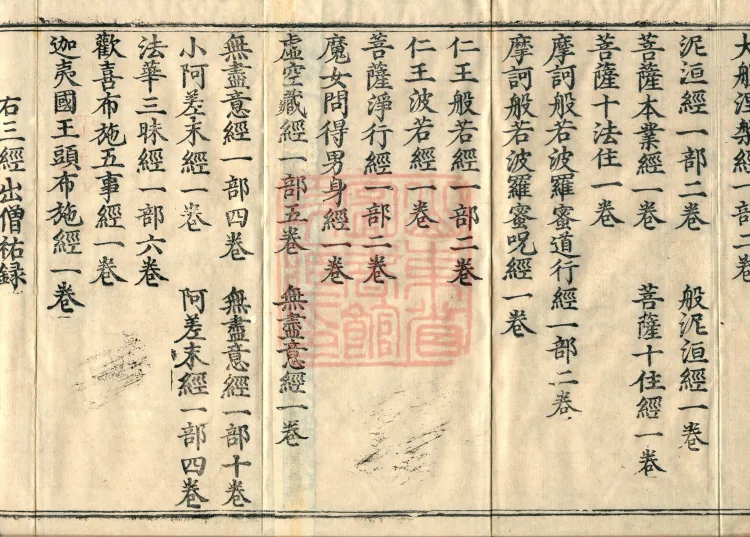 大般涅槃經一部二卷
泥洹經一部二卷 般泥洹經一卷
菩薩本業經一卷 菩薩十住經一卷
菩薩十法住一卷
摩訶般若波羅蜜道行經一部二卷
摩訶般若波羅蜜呪經一卷
仁王般若經一部二卷
仁王波若經一卷
菩薩淨行經一部二卷
魔女問得男身經一卷
虛空藏經一部五卷 無盡意經一卷
無盡意經一部四卷 無盡意經一部十卷
小阿差末經一卷 阿差末經一部四卷
法華三昧經一部六卷
歡喜布施五事經一卷
迦夷國王頭布施經一卷
右三經出僧祐録